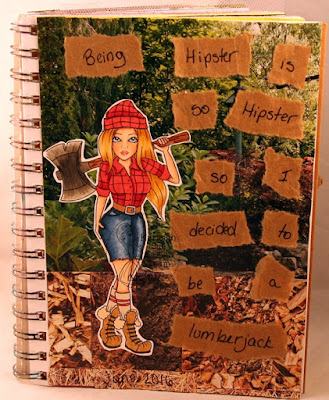 Being Hipster is
so Hipster
so I
decided to
be a
lumberjack
June 2016